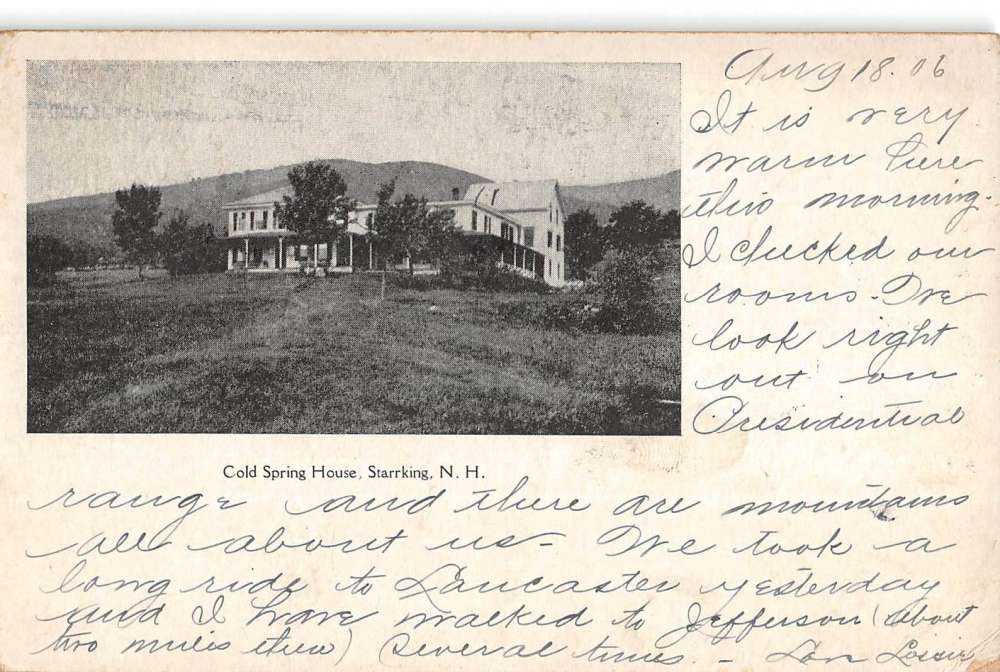 Aug 18. 06
It is very
warm here
this morning.
I checked our
rooms. We
look right
out on
Presidential
Cold Spring House, Starrking, N. H.
range and there are mountains
all about us - We took a
long ride to Lancaster yesterday
and I have walked to Jefferson (about
two miles) several times. -